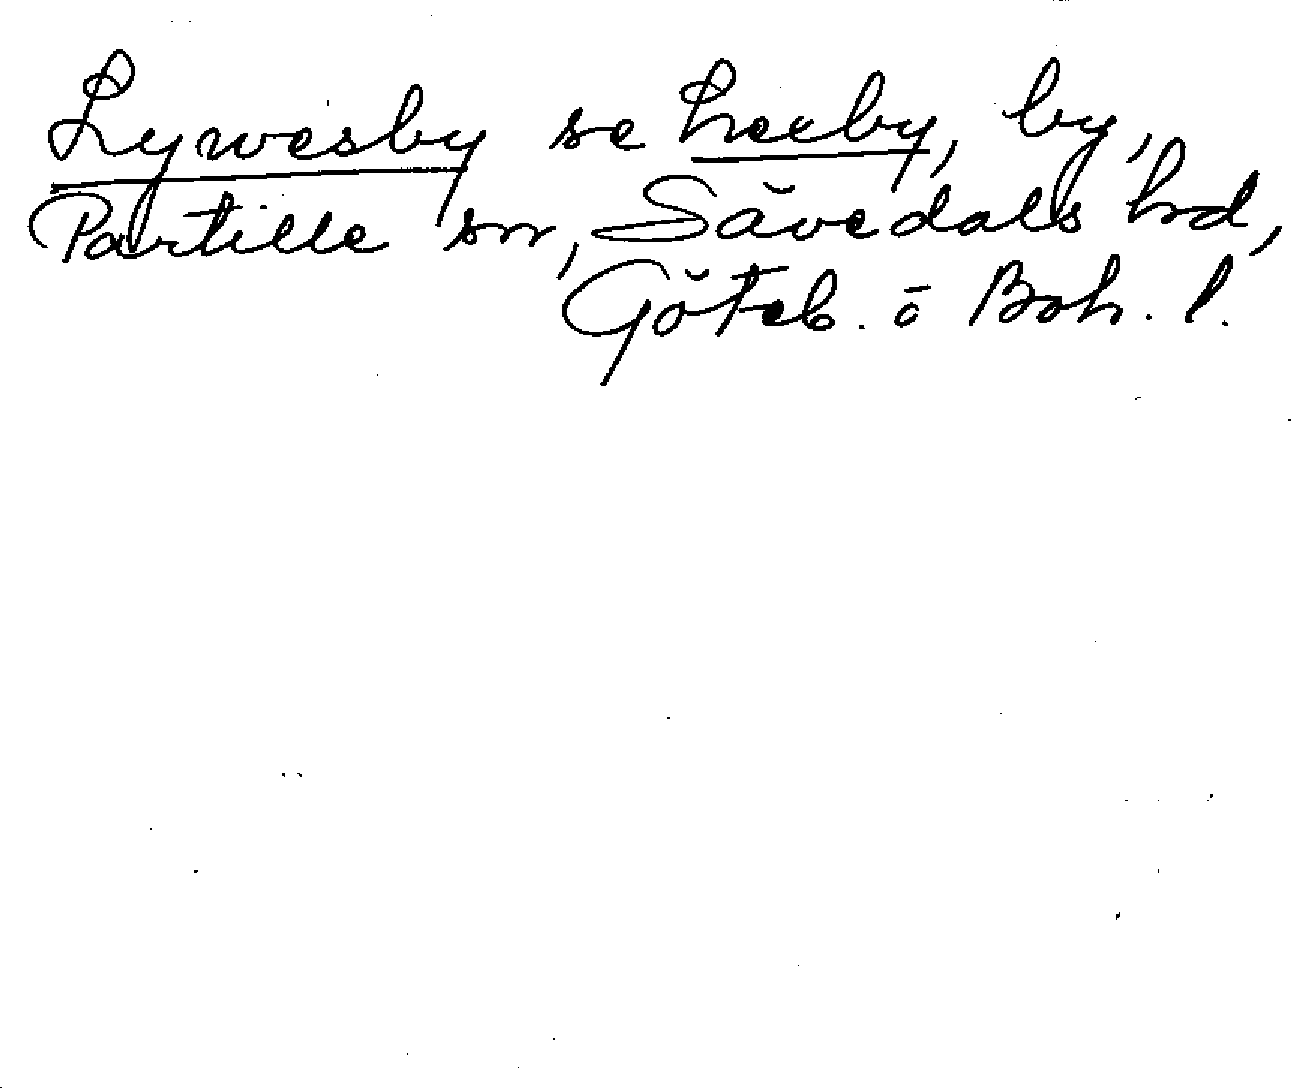 Lywesby se Leeby, by,
Partille sn, Sävedals hd,
Göteb. o Boh. l.